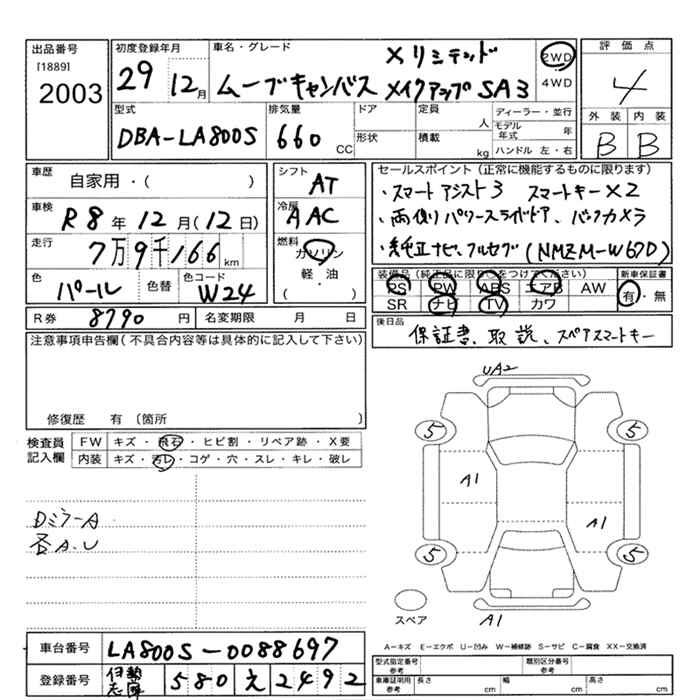 出品番号 [1889] 2003
初度登録年月 29 12月
車名・グレード Xリミテッド
ムーブキャンバス メイクアップ SA3
2WD 4WD
評価点 4
外装 内装
B B
型式 DBA-LA800S
排気量 660 CC
ドア 形状
定員 人 積載 kg
ディーラー・並行
モデル年式 年
ハンドル 左・右
車歴 自家用・( )
車検 R8年12月(12日)
走行 7万9千166km
色 パール 色替 色コード W24
シフト AT
冷房 AAC
燃料 ガソリン
軽・油
( )
セールスポイント (正常に機能するものに限ります)
・スマートアシスト3 スマートキー×2
・両側パワースライドドア、バックカメラ
・純正ナビ、フルセグ(NMZM-W67D)
装備品(純正品に限り○をつけてください)
PS PW ABS エアB AW
SR ナビ TV カワ
新車保証書
有・無
R券 8790円 名変期限 月 日
後日品 保証書、取説、スペアスマートキー
注意事項申告欄(不具合内容等は具体的に記入して下さい)
修復歴 有 〔箇所 〕
検査員記入欄
FW キズ・飛石・ヒビ割・リペア跡・X要
内装 キズ・汚レ・コゲ・穴・スレ・キレ・破レ
DミラーA
各A.U
UA2
5 5
A1
A1
5 5
スペア
A1
A=キズ E=エクボ U=凹み W=補修跡 S=サビ C=腐食 XX=交換済
車台番号 LA800S-0088697
登録番号 伊勢志摩 580 え 2492
型式指定番号 参考
類別区分番号 参考
車庫証明用 参考 長さ cm 幅 cm 高さ cm